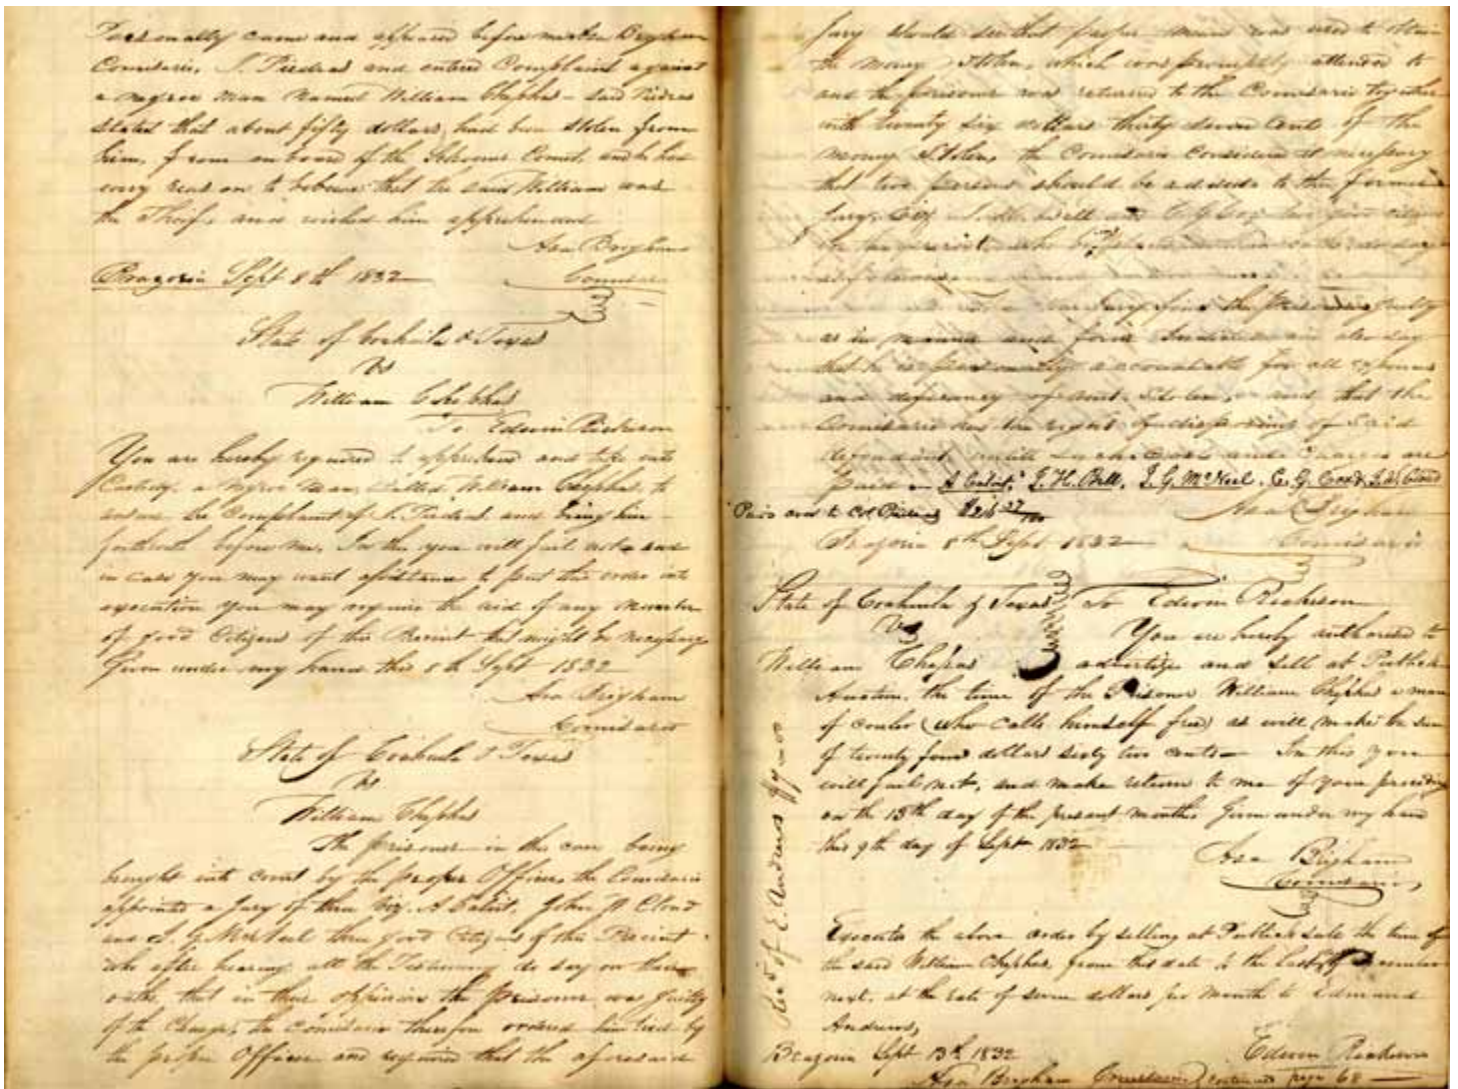 Personally came and appeared before me Asa Brigham
Comisario, J. Piedras and entered Complaint against
a negroe man Named William Chephas – Said Piedras
stated that about fifty dollars had been stolen from
him, from on board of the Schooner Comet, and he has
every reason to believe that the said William was
the Theif, and wished him apprehended
Asa Brigham
Brazoria Sept 8th 1832 Comisario
State of Coahuila & Texas
vs
William Chephas
To Edwin Richeson
You are hereby required to apprehend and take into
Custody, a negroe man, Called William Chephas, to
answer the Complaint of J. Piedras. and bring him
forthwith before me. In this you will fail not and
in case you may want assistance to put this order into
execution you may require the aid of any number
of good Citizens of this Precint that might be necessary
Given under my hand this 8th Sept 1832
Asa Brigham
Comisario
State of Coahuila & Texas
vs
William Chephas
The prisoner in this case being
brought into court by the proper Officer, the Comisario
appointed a Jury of three viz. A Calvit, John W Cloud
and J. G. McNeel three good Citizens of this Precint
who after hearing all the Testimony do say on their
oaths, that in their oppinion the prisoner was guilty
of the Charge, the Comisario therefore ordered him tied by
the proper Officer and required that the aforesaid
Jury should see that proper means was used to obtain
the money stolen, which was promptly attended to
and the prisoner was returned to the Comisario together
with twenty six dollars thirty seven Cents of the
money Stolen, the Comisario Considered it necessary
that two persons should be added to the former
Jury, viz J. H. Bell and C. G. Cox two good citizens
of this precint, who
Jury find the prisoner guilty
as in manner and form and also say
that he is personally accountable for all expenses
and deficiency of amt. Stolen, and that the
Comisario has the right of disposing of Said
until such costs and Charges are
paid – A Calvit, J. H. Bell, J. G. McNeel, C. G. Cox & J. W. Cloud
Paid over to Col Piedras $26 37/100 Asa Brigham
Brazoria 8th Sept 1832 Comisario
State of Coahuila & Texas To Edwin Richeson
Vs You are hereby authorised to
William Chephas advertize and sell at Publick
Auction, the time of the Prisoner William Chephas a man
of couler (who calls himself free) as will make the sum
of twenty four dollars sixty two cents – In this you
will fail not, and make return to me of your proceedings
on the 13th day of the present month Given under my hand
this 9th day of Sept 1832
Asa Brigham
Comisario
Recd of E. Andrews
Executed the above order by selling at Publick sale the time of
the said William Chephas from this date to the last of December
next, at the rate of seven dollars per month to Edmund
Andrews,
Brazoria Sept 13th 1832 Edwin Richeson
Asa Brigham Comisario continued page 68